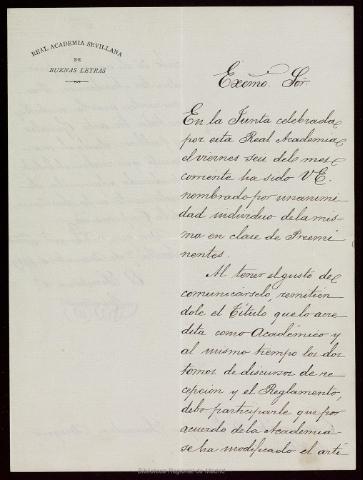 REAL ACADEMIA SEVILLANA
DE
BUENAS LETRAS
Excmo. Sor.
En la Junta celebrada
por esta Real Academia
el viernes seis del mes
corriente ha sido V.E.
nombrado por unanimi
dad individuo de la mis
ma en clase de Preemi
nentes.
Al tener el gusto de
comunicárselo, remitién
dole el Título que lo acre
dita como Académico y
al mismo tiempo los dos
tomos de discursos de re
cepción y el Reglamento,
debo participarle que por
acuerdo de la Academia
se ha modificado el artí
Biblioteca Regional de Madrid